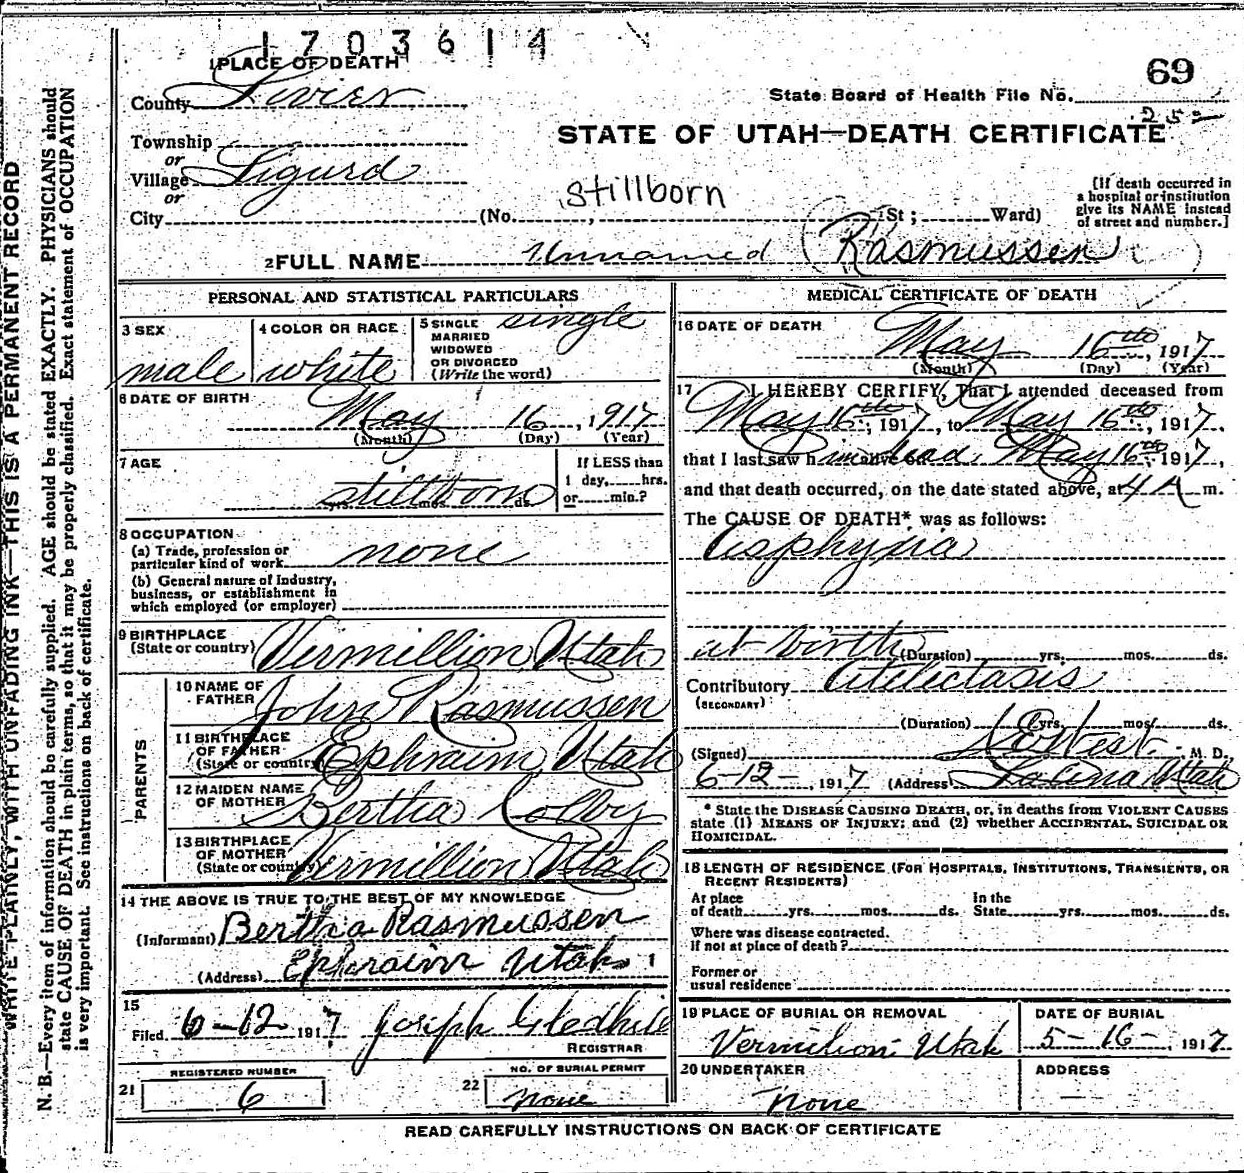 1703614
1 PLACE OF DEATH
County Sevier
69
State Board of Health File No.
252
Township
or
Village Sigurd
or
City (No. , St ; Ward)
STATE OF UTAH—DEATH CERTIFICATE
stillborn
[If death occurred in
a hospital or institution
give its NAME instead
of street and number.]
2 FULL NAME Unnamed (Rasmussen)
PERSONAL AND STATISTICAL PARTICULARS
3 SEX
male
4 COLOR OR RACE
white
5 SINGLE
MARRIED
WIDOWED
OR DIVORCED
(Write the word)
single
6 DATE OF BIRTH
May 16, 1917
(Month) (Day) (Year)
7 AGE
stillborn
yrs. mos. ds.
If LESS than
1 day, hrs.
or min.?
8 OCCUPATION
(a) Trade, profession or
particular kind of work none
(b) General nature of Industry,
business, or establishment in
which employed (or employer)
9 BIRTHPLACE
(State or country) Vermillion Utah
PARENTS
10 NAME OF
FATHER John Rasmussen
11 BIRTHPLACE
OF FATHER
(State or country) Ephraim Utah
12 MAIDEN NAME
OF MOTHER Bertha Colby
13 BIRTHPLACE
OF MOTHER
(State or country) Vermillion Utah
14 THE ABOVE IS TRUE TO THE BEST OF MY KNOWLEDGE
(Informant) Bertha Rasmussen
(Address) Ephraim Utah
15
Filed 6-12 1917 Joseph Gledhill
REGISTRAR
21 REGISTERED NUMBER
6
22 NO. OF BURIAL PERMIT
none
MEDICAL CERTIFICATE OF DEATH
16 DATE OF DEATH
May 16th, 1917
(Month) (Day) (Year)
17 I HEREBY CERTIFY, That I attended deceased from
May 16th, 1917, to May 16th, 1917.
that I last saw him alive on dead May 16th, 1917,
and that death occurred, on the date stated above, at 4 A m.
The CAUSE OF DEATH* was as follows:
Asphyxia
at birth (Duration) yrs. mos. ds.
Contributory Atelectasis
(SECONDARY)
(Duration) yrs. mos. ds.
(Signed) West M. D.
6-12-, 1917 (Address) Salina Utah
* State the DISEASE CAUSING DEATH, or, in deaths from VIOLENT CAUSES
state (1) MEANS OF INJURY; and (2) whether ACCIDENTAL, SUICIDAL OR
HOMICIDAL.
18 LENGTH OF RESIDENCE (FOR HOSPITALS, INSTITUTIONS, TRANSIENTS, OR
RECENT RESIDENTS)
At place
of death yrs. mos. ds.
In the
State yrs. mos. ds.
Where was disease contracted.
If not at place of death?
Former or
usual residence
19 PLACE OF BURIAL OR REMOVAL
Vermilion Utah
DATE OF BURIAL
5-16-, 1917
20 UNDERTAKER
none
ADDRESS
READ CAREFULLY INSTRUCTIONS ON BACK OF CERTIFICATE
WRITE PLAINLY, WITH UNFADING INK—THIS IS A PERMANENT RECORD
N. B.—Every item of information should be carefully supplied. AGE should be stated EXACTLY. PHYSICIANS should
state CAUSE OF DEATH in plain terms, so that it may be properly classified. Exact statement of OCCUPATION
is very important. See instructions on back of certificate.